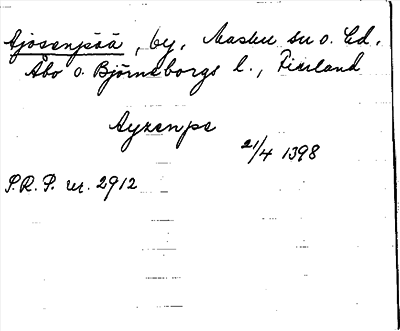 Ajosenpää, by, Masku sn o. hd,
Åbo o. Björneborgs l., Finland
Ayzenpe
21/4 1398
P.R.P. nr. 2912